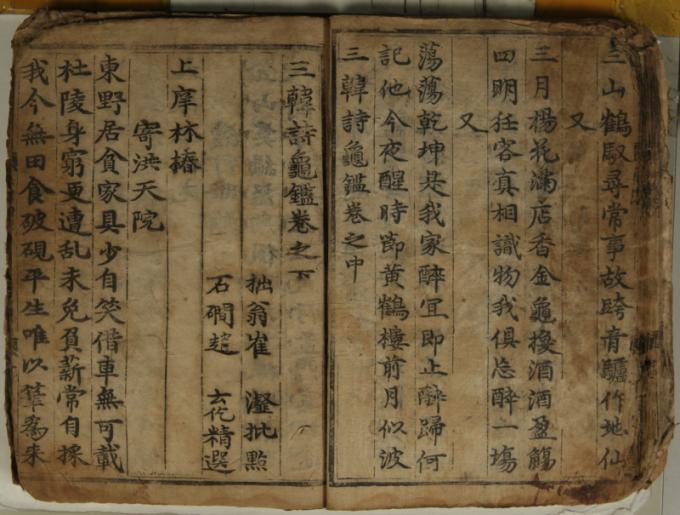 三山鶴馭尋常事故跨青驢作地仙
又
三月楊花滿店香金龜換酒酒盈觴
四明狂客真相識物我俱忘醉一場
又
蕩蕩乾坤是我家醉宜即止醉歸何
記他今夜醒時節黃鶴樓前月似波
三韓詩龜鑑卷之中
三韓詩龜鑑卷之下
拙翁崔瀣批點
石磵趙云仡精選
上庠林椿
寄洪天院
東野居貧家具少自笑借車無可載
杜陵身窮更遭乱未免負薪常自採
我今無田食破硯平生唯以筆爲耒